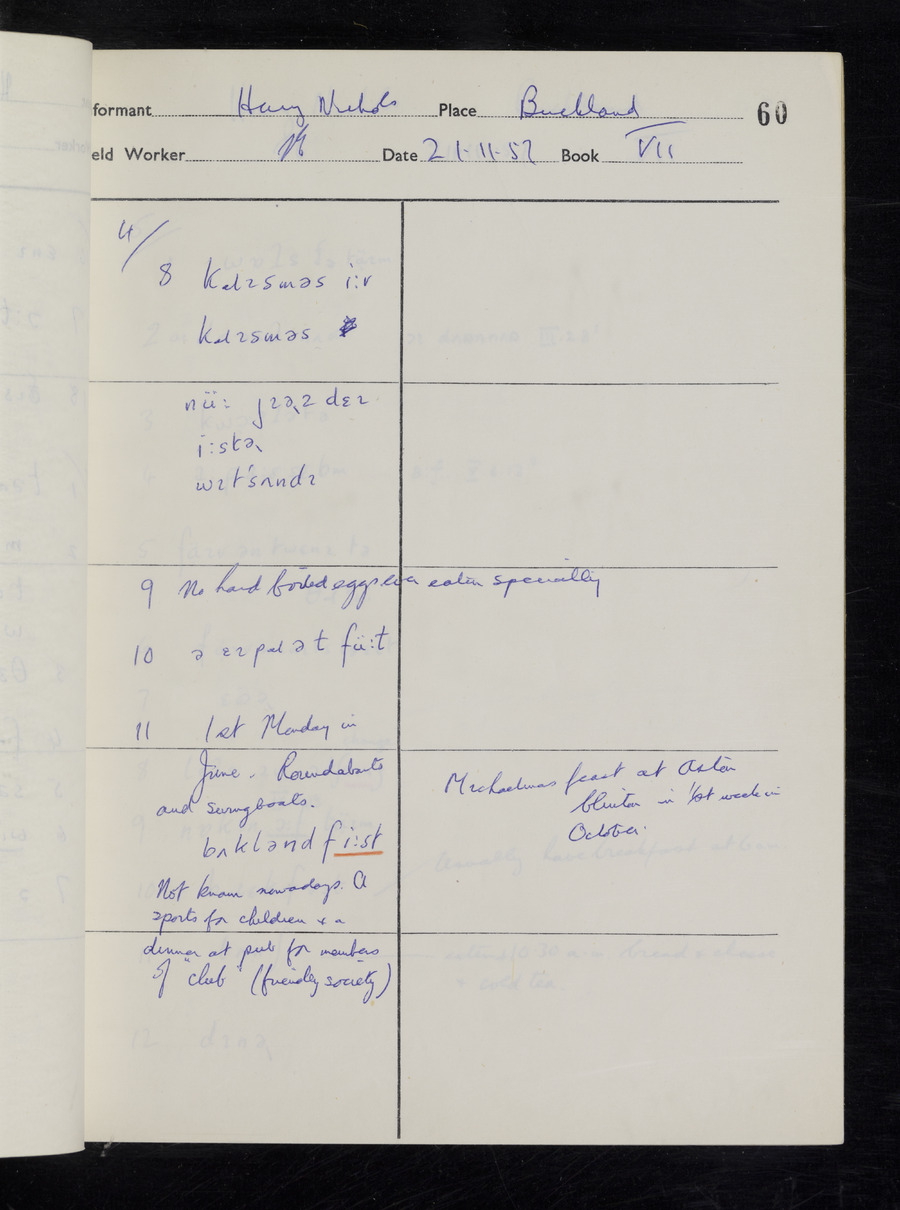 formant Harry Nichols Place Buckland 60
eld Worker Date 21-11-57 Book VII
4/
8 kɹɪsməs iːv
kɹɪsməs
nüː jɪəɻz dɛɪ
iːstəɻ
wɪtsʌndɪ
9 No hard boiled eggs ever eaten specially
10 ə ɛɪpɹəɫ füːɫ
11 1st Monday in
June. Roundabouts
and swingboats.
bʌklənd fiːst
Not known nowadays. A
sports for children + a
dinner at pub for members
of "club" (friendly society)
Michaelmas feast at Aston
Clinton in 1st week in
October.